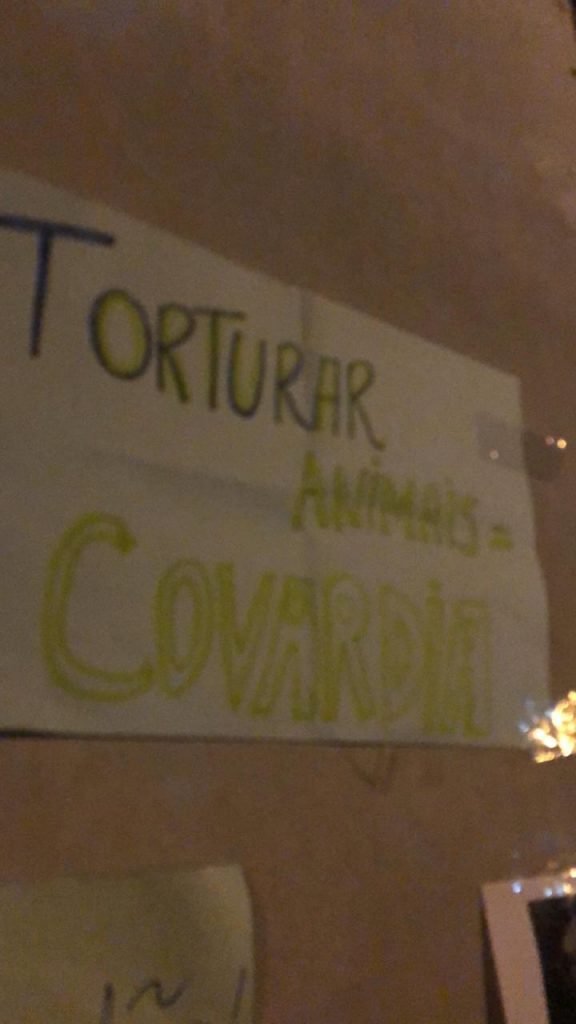 TORTURAR
ANiMAiS =
COVARDiA